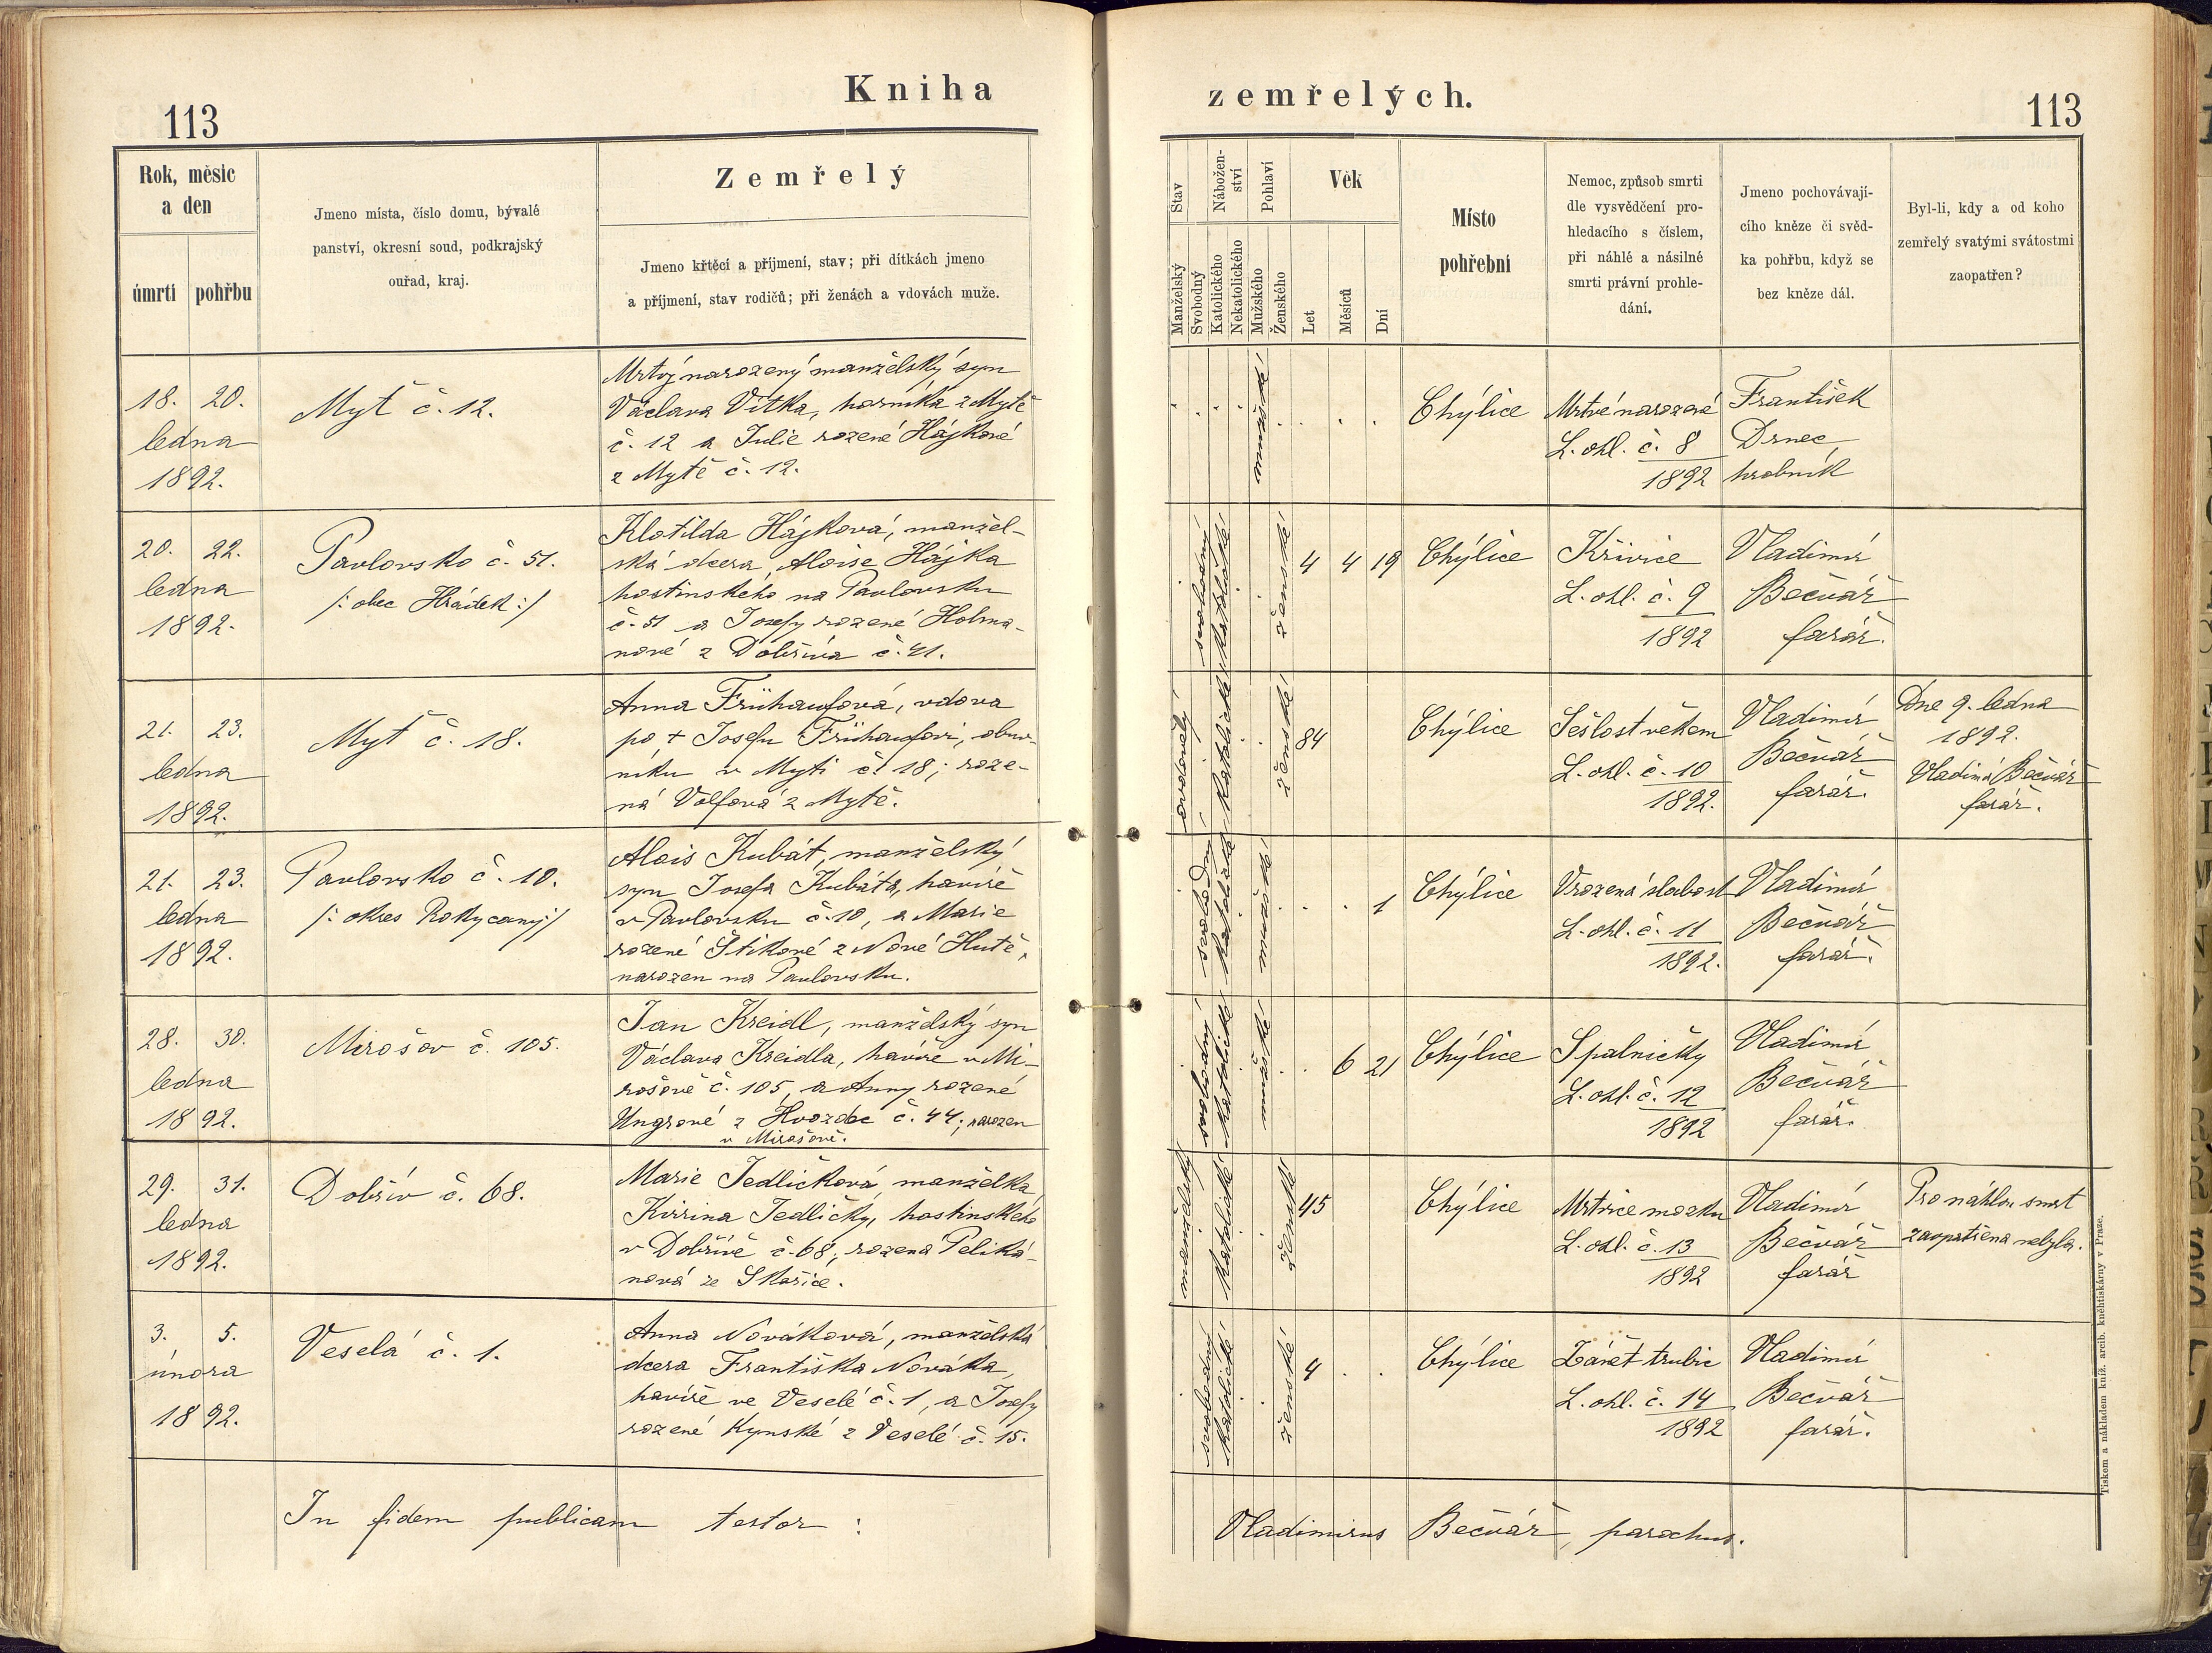 Kniha
113
Rok, měsíc
a den
úmrtí
pohřbu
Jmeno místa, číslo domu, bývalé
panství, okresní soud, podkrajský
ouřad, kraj.
Zemřelý
Jmeno křtěcí a příjmení, stav; při dítkách jmeno
a příjmení, stav rodičů; při ženách a vdovách muže.
18. 20.
ledna
1892.
Myť č. 12.
Mrtvý narozený manželský syn
Václava Vítka, horníka z Mytě
č. 12 a Julie rozené Hájkové
z Mytě č. 12.
20. 22.
ledna
1892.
Pavlovsko č. 51.
/: obec Hrádek :/
Klotilda Hájková, manžel-
ská dcera Aloise Hájka
hostinského na Pavlovsku
č. 51 a Josefy rozené Holma-
nové z Dobříva č. 41.
21. 23.
ledna
1892.
Myť č. 18.
Anna Frühaufová, vdova
po + Josefu Frühaufovi, obuv-
níku v Myti č. 18; roze-
ná Volfová z Mytě.
21. 23.
ledna
1892.
Pavlovsko č. 10.
/: okres Rokycany :/
Alois Kubát, manželský
syn Josefa Kubáta, havíře
v Pavlovsku č. 10, a Marie
rozené Štikové z Nové Hutě,
narozen na Pavlovsku.
28. 30.
ledna
1892.
Mirošov č. 105.
Jan Kreidl, manželský syn
Václava Kreidla, havíře v Mi-
rošově č. 105, a Anny rozené
Ungrové z Hvozdec č. 44; narozen
v Mirošově.
29. 31.
ledna
1892.
Dobřív č. 68.
Marie Jedličková manželka
Kvirina Jedličky, hostinského
v Dobřívě č. 68; rozená Peliká-
nová ze Skořice.
3. 5.
února
1892.
Veselá č. 1.
Anna Nováková, manželská
dcera Františka Nováka,
havíře ve Veselé č. 1, a Josefy
rozené Kynské z Veselé č. 15.
In fidem publicam testor :
zemřelých.
113
Stav
Manželský
Svobodný
Nábožen-
ství
Katolického
Nekatolického
Pohlaví
Mužského
Ženského
Věk
Let
Měsíců
Dní
Místo
pohřební
Nemoc, způsob smrti
dle vysvědčení pro-
hledacího s číslem,
při náhlé a násilné
smrti právní prohle-
dání.
Jmeno pochovávají-
cího kněze či svěd-
ka pohřbu, když se
bez kněze dál.
Byl-li, kdy a od koho
zemřelý svatými svátostmi
zaopatřen?
mužské
Chýlice
Mrtvé narozené
L. ohl. č. 8
1892
František
Drnec,
hrobník
svobodný
katolické
ženské
4 4 19
Chýlice
Křivice
L. ohl. č. 9
1892
Vladimír
Bečvář
farář.
ovdovělý
katolické
ženské
84
Chýlice
Sešlost věkem
L. ohl. č. 10
1892.
Vladimír
Bečvář
farář.
Dne 9. ledna
1892.
Vladimír Bečvář
farář.
svobodný
katolické
mužské
1
Chýlice
Vrozená slabost
L. ohl. č. 11
1892.
Vladimír
Bečvář
farář.
svobodný
katolické
mužské
6 21
Chýlice
Spalničky
L. ohl. č. 12
1892
Vladimír
Bečvář
farář.
manželský
katolické
ženské
45
Chýlice
Mrtvice mozku
L. ohl. č. 13
1892
Vladimír
Bečvář
farář
Pro náhlou smrt
zaopatřena nebyla.
svobodný
katolické
ženské
4
Chýlice
Zánět trubic
L. ohl. č. 14
1892
Vladimír
Bečvář
farář.
Vladimirus Bečvář, parochus.
Tiskem a nákladem kníž. arcib. kněhtiskárny v Praze.